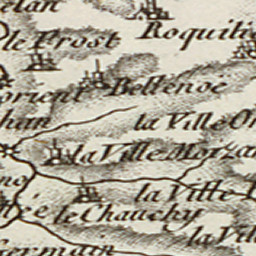 elan
Roquilie
le Frost
orient
Bellenoë
ham
la Ville
la Ville Morza
la Ville
le Chauchy
la Vil
Germain